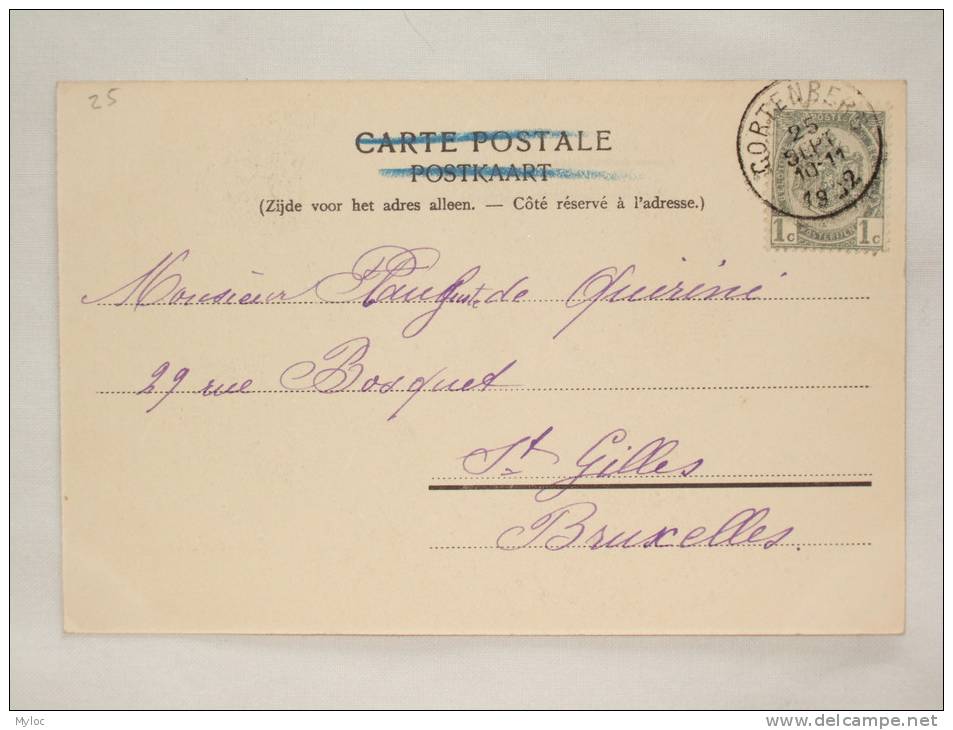 25
CARTE POSTALE
POSTKAART
(Zijde voor het adres alleen. — Côté réservé à l'adresse.)
CORTENBERG
25
SEPT
10-11
POSTE
1c 1c
Monsieur de Quirini
29 rue Bosquet
St Gilles
Bruxelles.
Myloc
delcampe.net